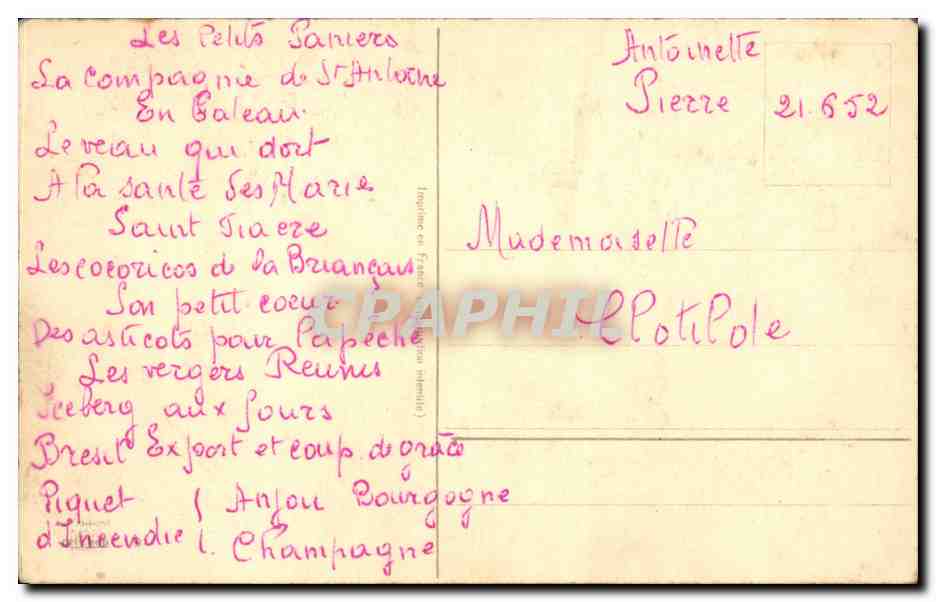 Les Petits Paniers
La compagnie de St Antoine
En Gateau
Le veau qui dort
A la santé des Marie
Saint Fiacre
Les cocoricos de la Briançais
Son petit coeur
Des asticots pour la pêche
Les vergers Reunis
Iceberg aux fours
Bresil Export et coup de grâce
Piquet
d'Incendie
Anjou Bourgogne
Champagne
Imprimé en France
interdite)
Antoinette
Pierre
21.6.52
Mademoiselle
Clotilde
CPARHIL